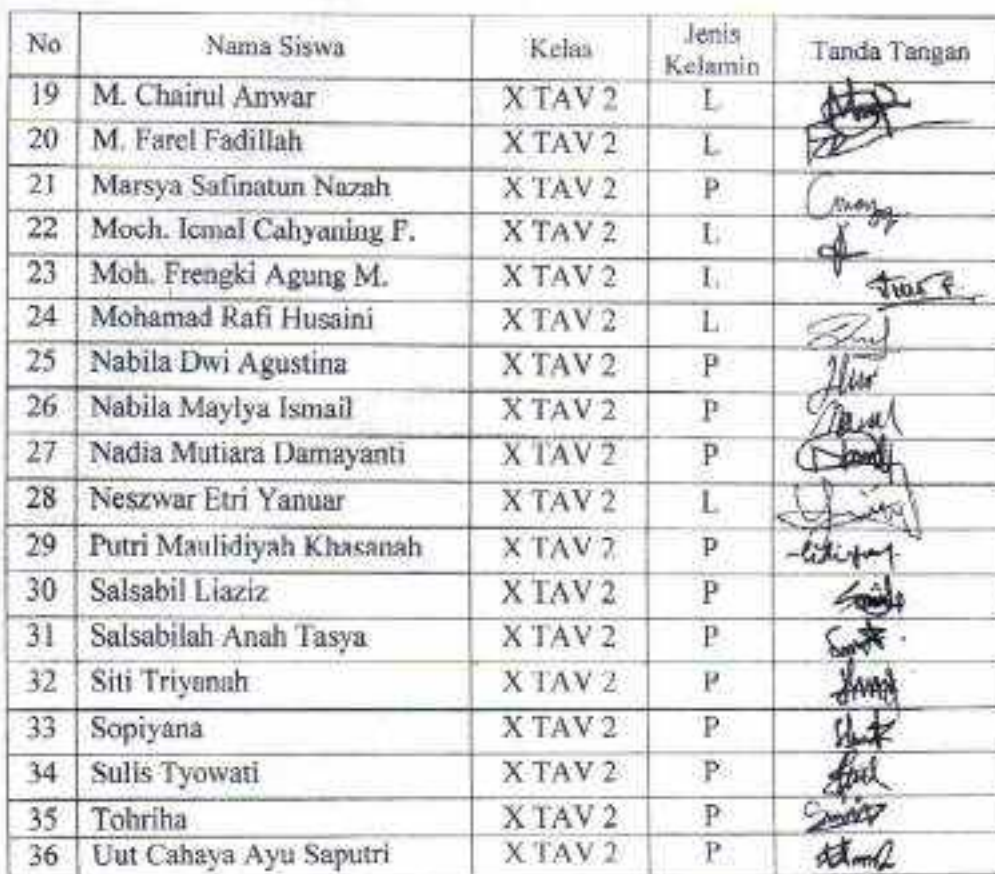 No Nama Siswa Kelas Jenis Kelamin Tanda Tangan
19 M. Chairul Anwar X TAV 2 L
20 M. Farel Fadillah X TAV 2 L
21 Marsya Safinatun Nazah X TAV 2 P
22 Moch. Icmal Cahyaning F. X TAV 2 L
23 Moh. Frengki Agung M. X TAV 2 L
24 Mohamad Rafi Husaini X TAV 2 L
25 Nabila Dwi Agustina X TAV 2 P
26 Nabila Maylya Ismail X TAV 2 P
27 Nadia Mutiara Damayanti X TAV 2 P
28 Neszwar Etri Yanuar X TAV 2 L
29 Putri Maulidiyah Khasanah X TAV 2 P
30 Salsabil Liaziz X TAV 2 P
31 Salsabilah Anah Tasya X TAV 2 P
32 Siti Triyanah X TAV 2 P
33 Sopiyana X TAV 2 P
34 Sulis Tyowati X TAV 2 P
35 Tohriha X TAV 2 P
36 Uut Cahaya Ayu Saputri X TAV 2 P